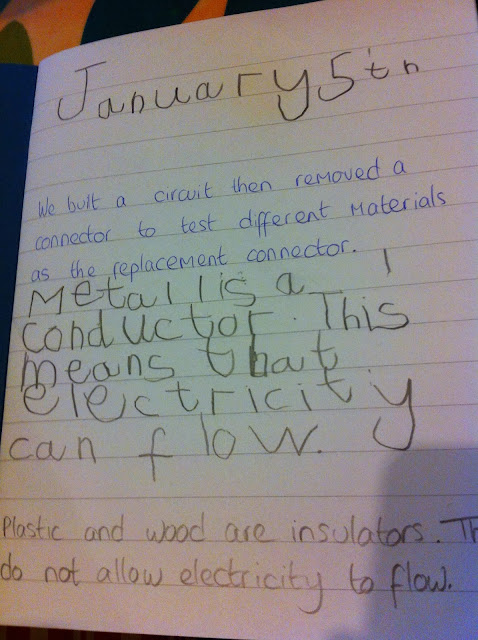 January 5th
We built a circuit then removed a
connector to test different materials
as the replacement connector.
Metal is a
conductor. This
means that
electricity
can flow.
Plastic and wood are insulators. Th
do not allow electricity to flow.